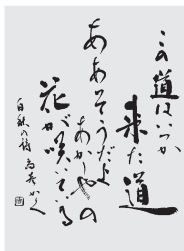 この道はいつか
来た道
ああそうだよ
あかしやの
花が咲いている
白秋の詩
かく